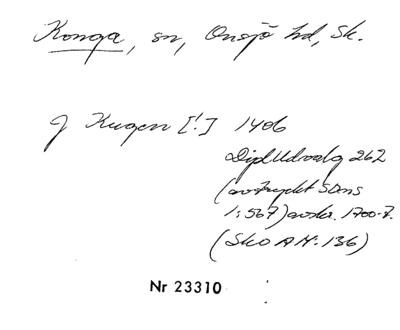 Konga, sn, Onsjö hd, Sk.
J Kugen [!] 1406
Dipl Udvalg 262
(avtryckt SDns
1:567) avskr. 1700-t.
(Sko A H: 136)
Nr 23310